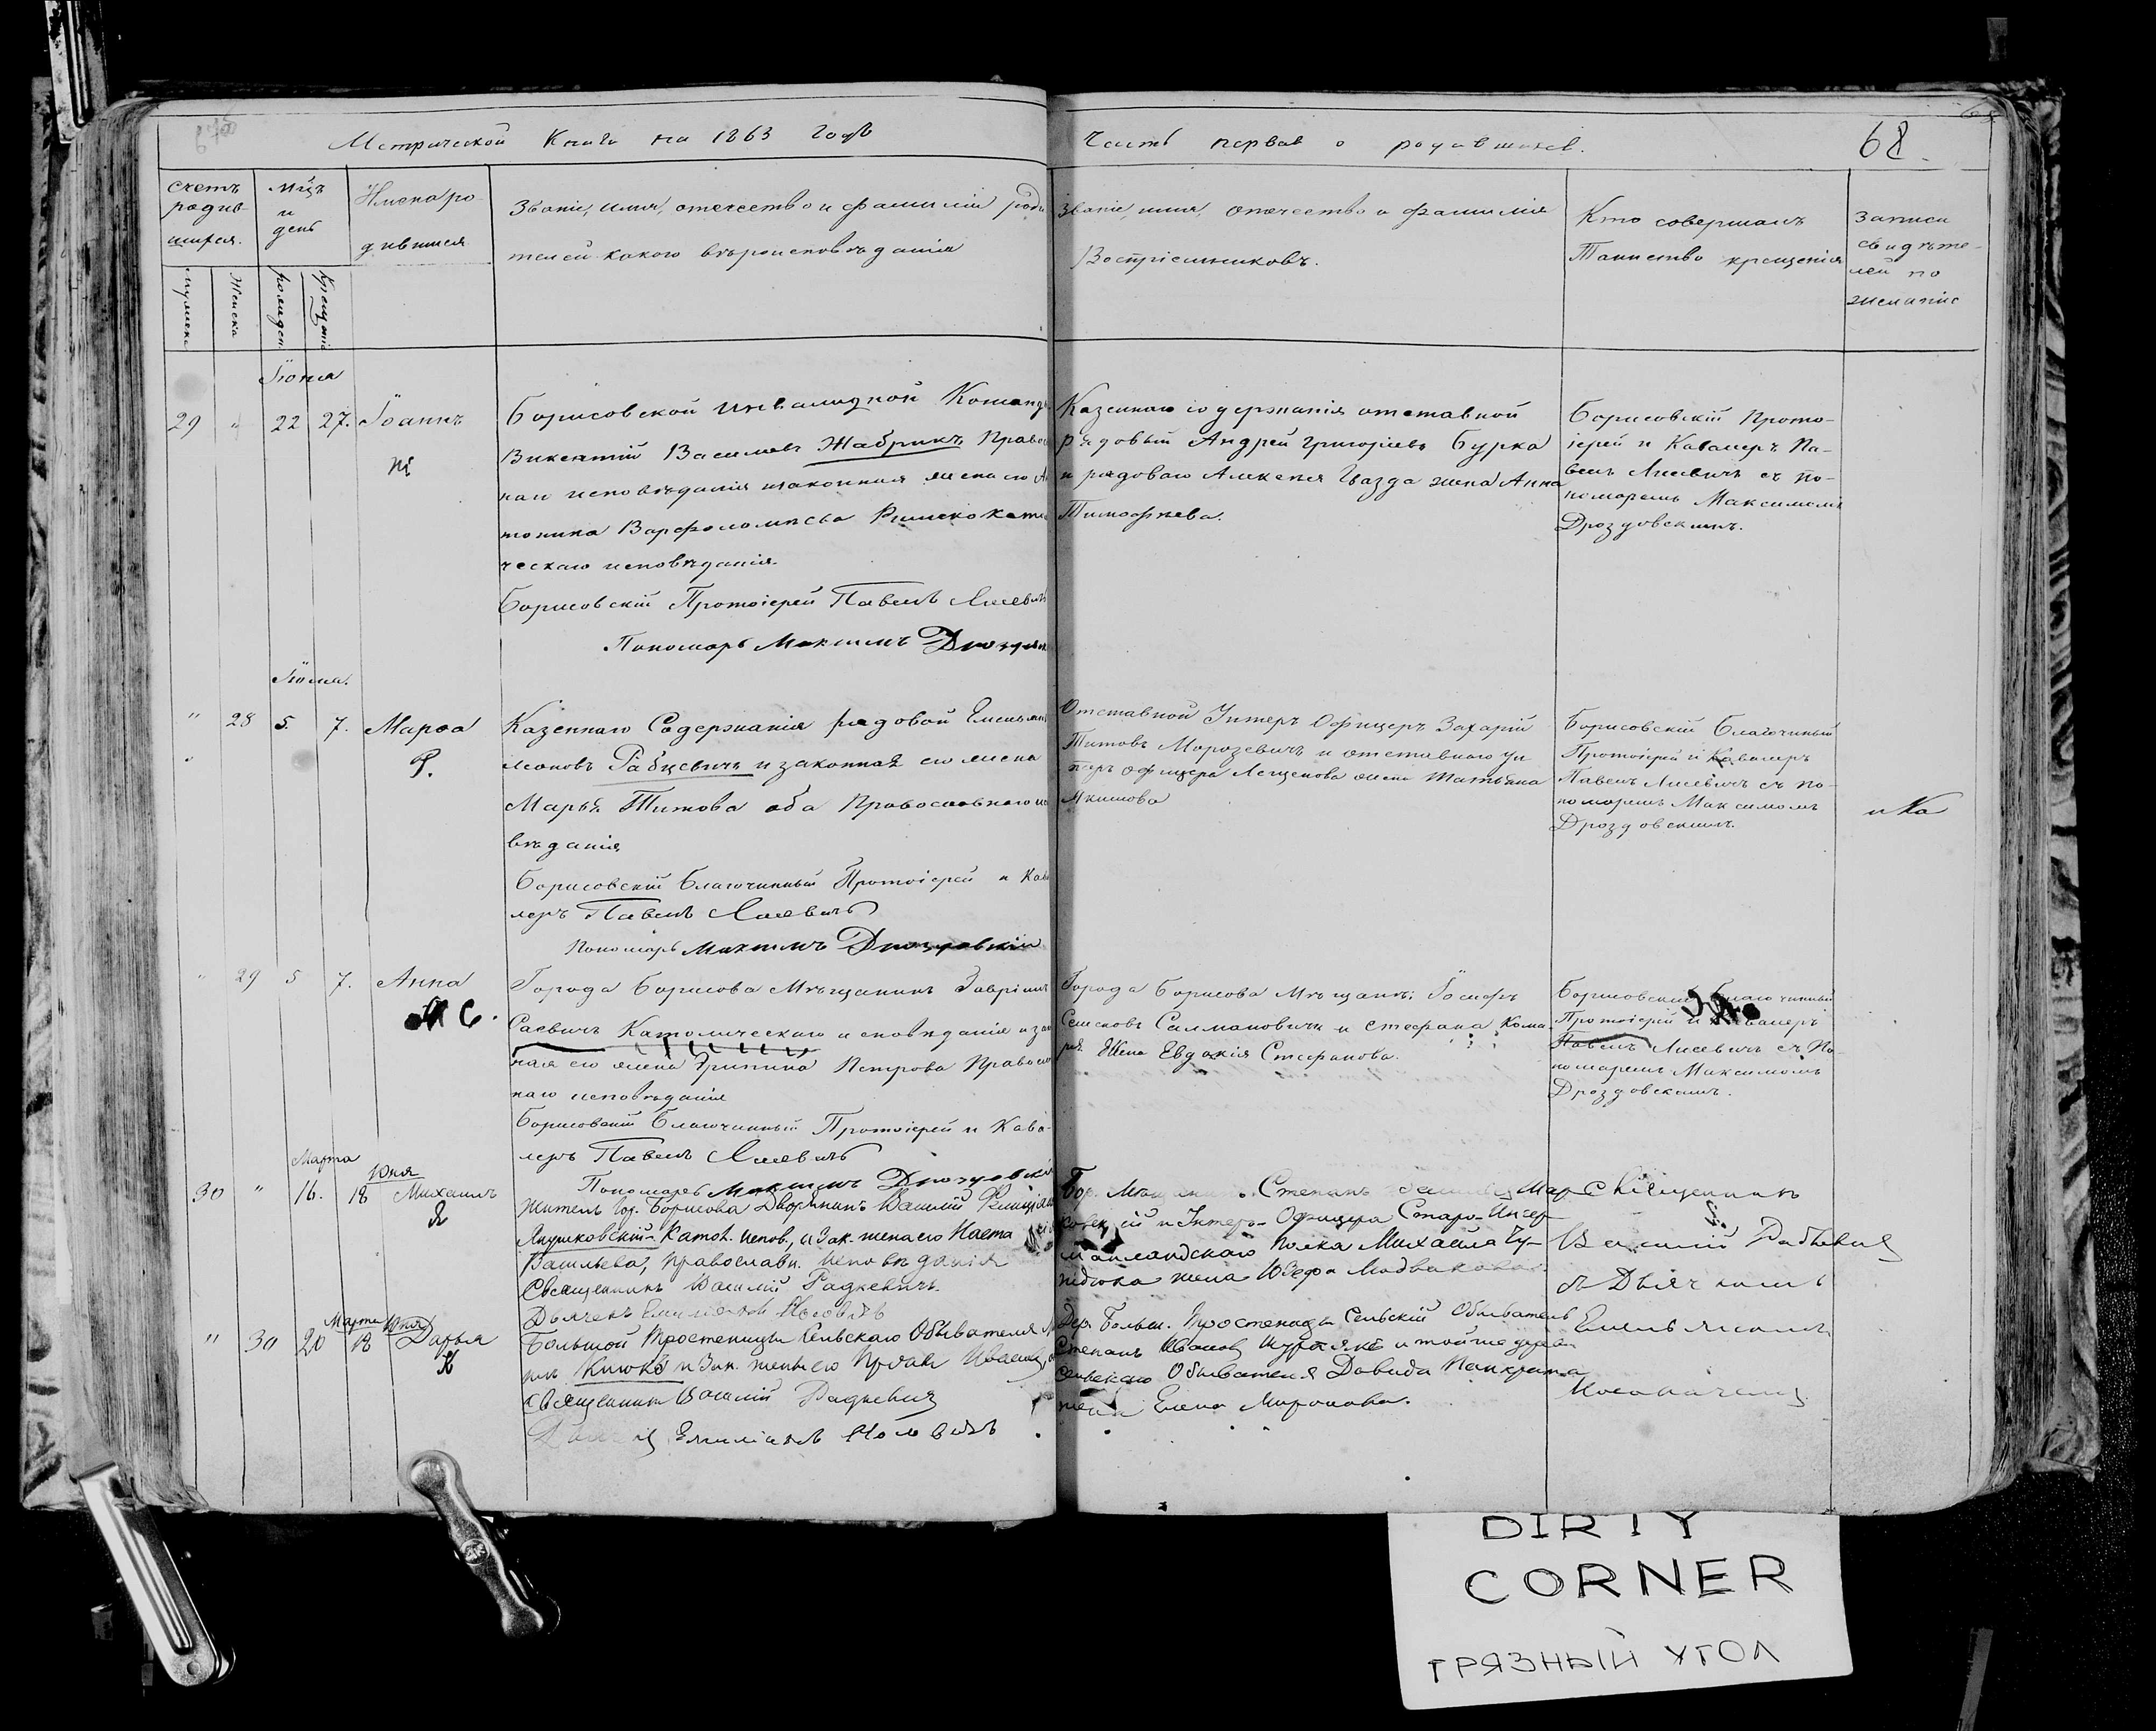 Метрической Книги на 1863 годъ
Часть первая о родившихся.
68.
счетъ родив-шихся.
мѣцъ и день
Имена ро-дившихся
Званіе, имя, отечество и фамилія роди
телей какого вѣроисповѣданія
Званіе, имя, отечество и фамилія
Воспріемниковъ.
Кто совершалъ
Таинство крещенія
Записи
свидѣте-
лей по
желанію
Мужеска
Женска
рожден.
Крещенія
Іюня
29 " 22 27. Іоаннъ
Борисовской Инвалидной Команды
Викентій Васильевъ Жабрикъ Право
наго исповѣданія и законная жена его Ан
тонина Варфоломѣева Римскокато
ческаго исповѣданія.
Борисовскій Протоіерей Павелъ Лисевичъ
Пономарь Максимъ
Казеннаго содержанія отставной
рядовый Андрей Григорьевъ Бурка
и рядоваго Алексея Гвазда жена Анна
Тимофѣева.
Борисовскій Прото-
іерей и Кавалеръ Па-
велъ Лисевичъ съ по-
номаремъ Максимомъ
Дроздовскимъ.
" 28 5. 7. Марѳа
Казеннаго Содержанія рядовой
Рабцевичъ и законная его жена
Марья Титова оба Православнаго
вѣданія
Борисовскій Благочинный Протоіерей и Кава
леръ Павелъ Лисевичъ
Пономарь Максимъ Дроздовскій
Отставной Унтеръ Офицеръ Захарій
Титовъ Морозевичъ и отставнаго ун
теръ офицера Лещенова жена Татьяна
Якимова
Борисовскій Благочинный
Протоіерей и Кавалеръ
Павелъ Лисевичъ съ по-
номаремъ Максимомъ
Дроздовскимъ.
" 29 5 7. Анна
Города Борисова Мѣщанинъ Гавріилъ
Раевичъ Католическаго исповѣданія и зак
ная его жена Петрова Правосл
наго исповѣданія
Борисовскій Благочинный Протоіерей и Кава-
леръ Павелъ Лисевичъ
Пономарь Максимъ Дроздовскій
Города Борисова Мѣщан: Іосифъ
Салмановичъ и Стефана Кома
ра Жена Евдокія Стефанова.
Борисовскій Благочинный
Протоіерей и Кавалеръ
Павелъ Лисевичъ съ По-
номаремъ Максимомъ
Дроздовскимъ.
Марта Юня
30 " 16. 18 Михаилъ
Житель гор. Борисова Дворянинъ Василій
Янушковскій Катол. испов., а Зак. жена его Наста
Васильева, православн. исповѣданія
Священникъ Василій Радкевичъ.
Бор. Степанъ
й и Унтеръ-Офицера Старо-Ингер
манландскаго полка Михаила
жена Юзефа
Священникъ
Василій Радкевичъ
Марта Юня
" 30 20 18 Дарья
Большой Тростеницы Сельскаго Обывателя
Священникъ Василій Радкевичъ
Дер. Больш. Тростеницы Сельскій Обыватель
Степанъ Ивановъ и той же дерев
сельскаго Обывателя Давида Панкрата
жена Елена Миронова.
DIRTY
CORNER
ГРЯЗНЫЙ УГОЛ